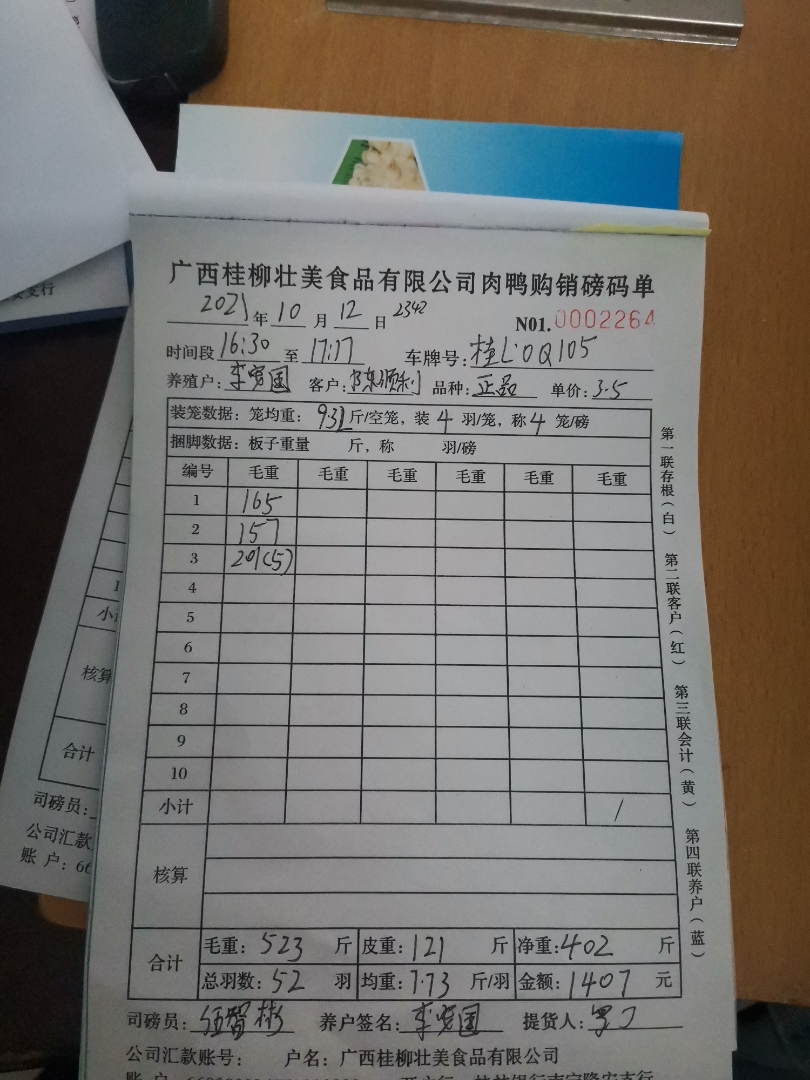 广西桂柳壮美食品有限公司肉鸭购销磅码单
2021年10月12日 2342
N01.0002264
时间段16:30至17:17 车牌号:桂L:0Q105
养殖户:李 国 客户:陈顺利 品种:正品 单价:3.5
装笼数据:笼均重:9.31斤/空笼,装4羽/笼,称4笼/磅
捆脚数据:板子重量 斤,称 羽/磅
编号 毛重 毛重 毛重 毛重 毛重 毛重
1 165
2 157
3 201(5)
4
5
6
7
8
9
10
小计 /
核算
合计
毛重:523斤 皮重:121斤 净重:402斤
总羽数:52羽 均重:7.73斤/羽 金额:1407元
司磅员:伍智彬 养户签名:李 国 提货人:
公司汇款账号: 户名:广西桂柳壮美食品有限公司
第一联存根(白) 第二联客户(红) 第三联会计(黄) 第四联养户(蓝)
支行
小
核算
合计
司磅员:
公司汇款
账 户:66